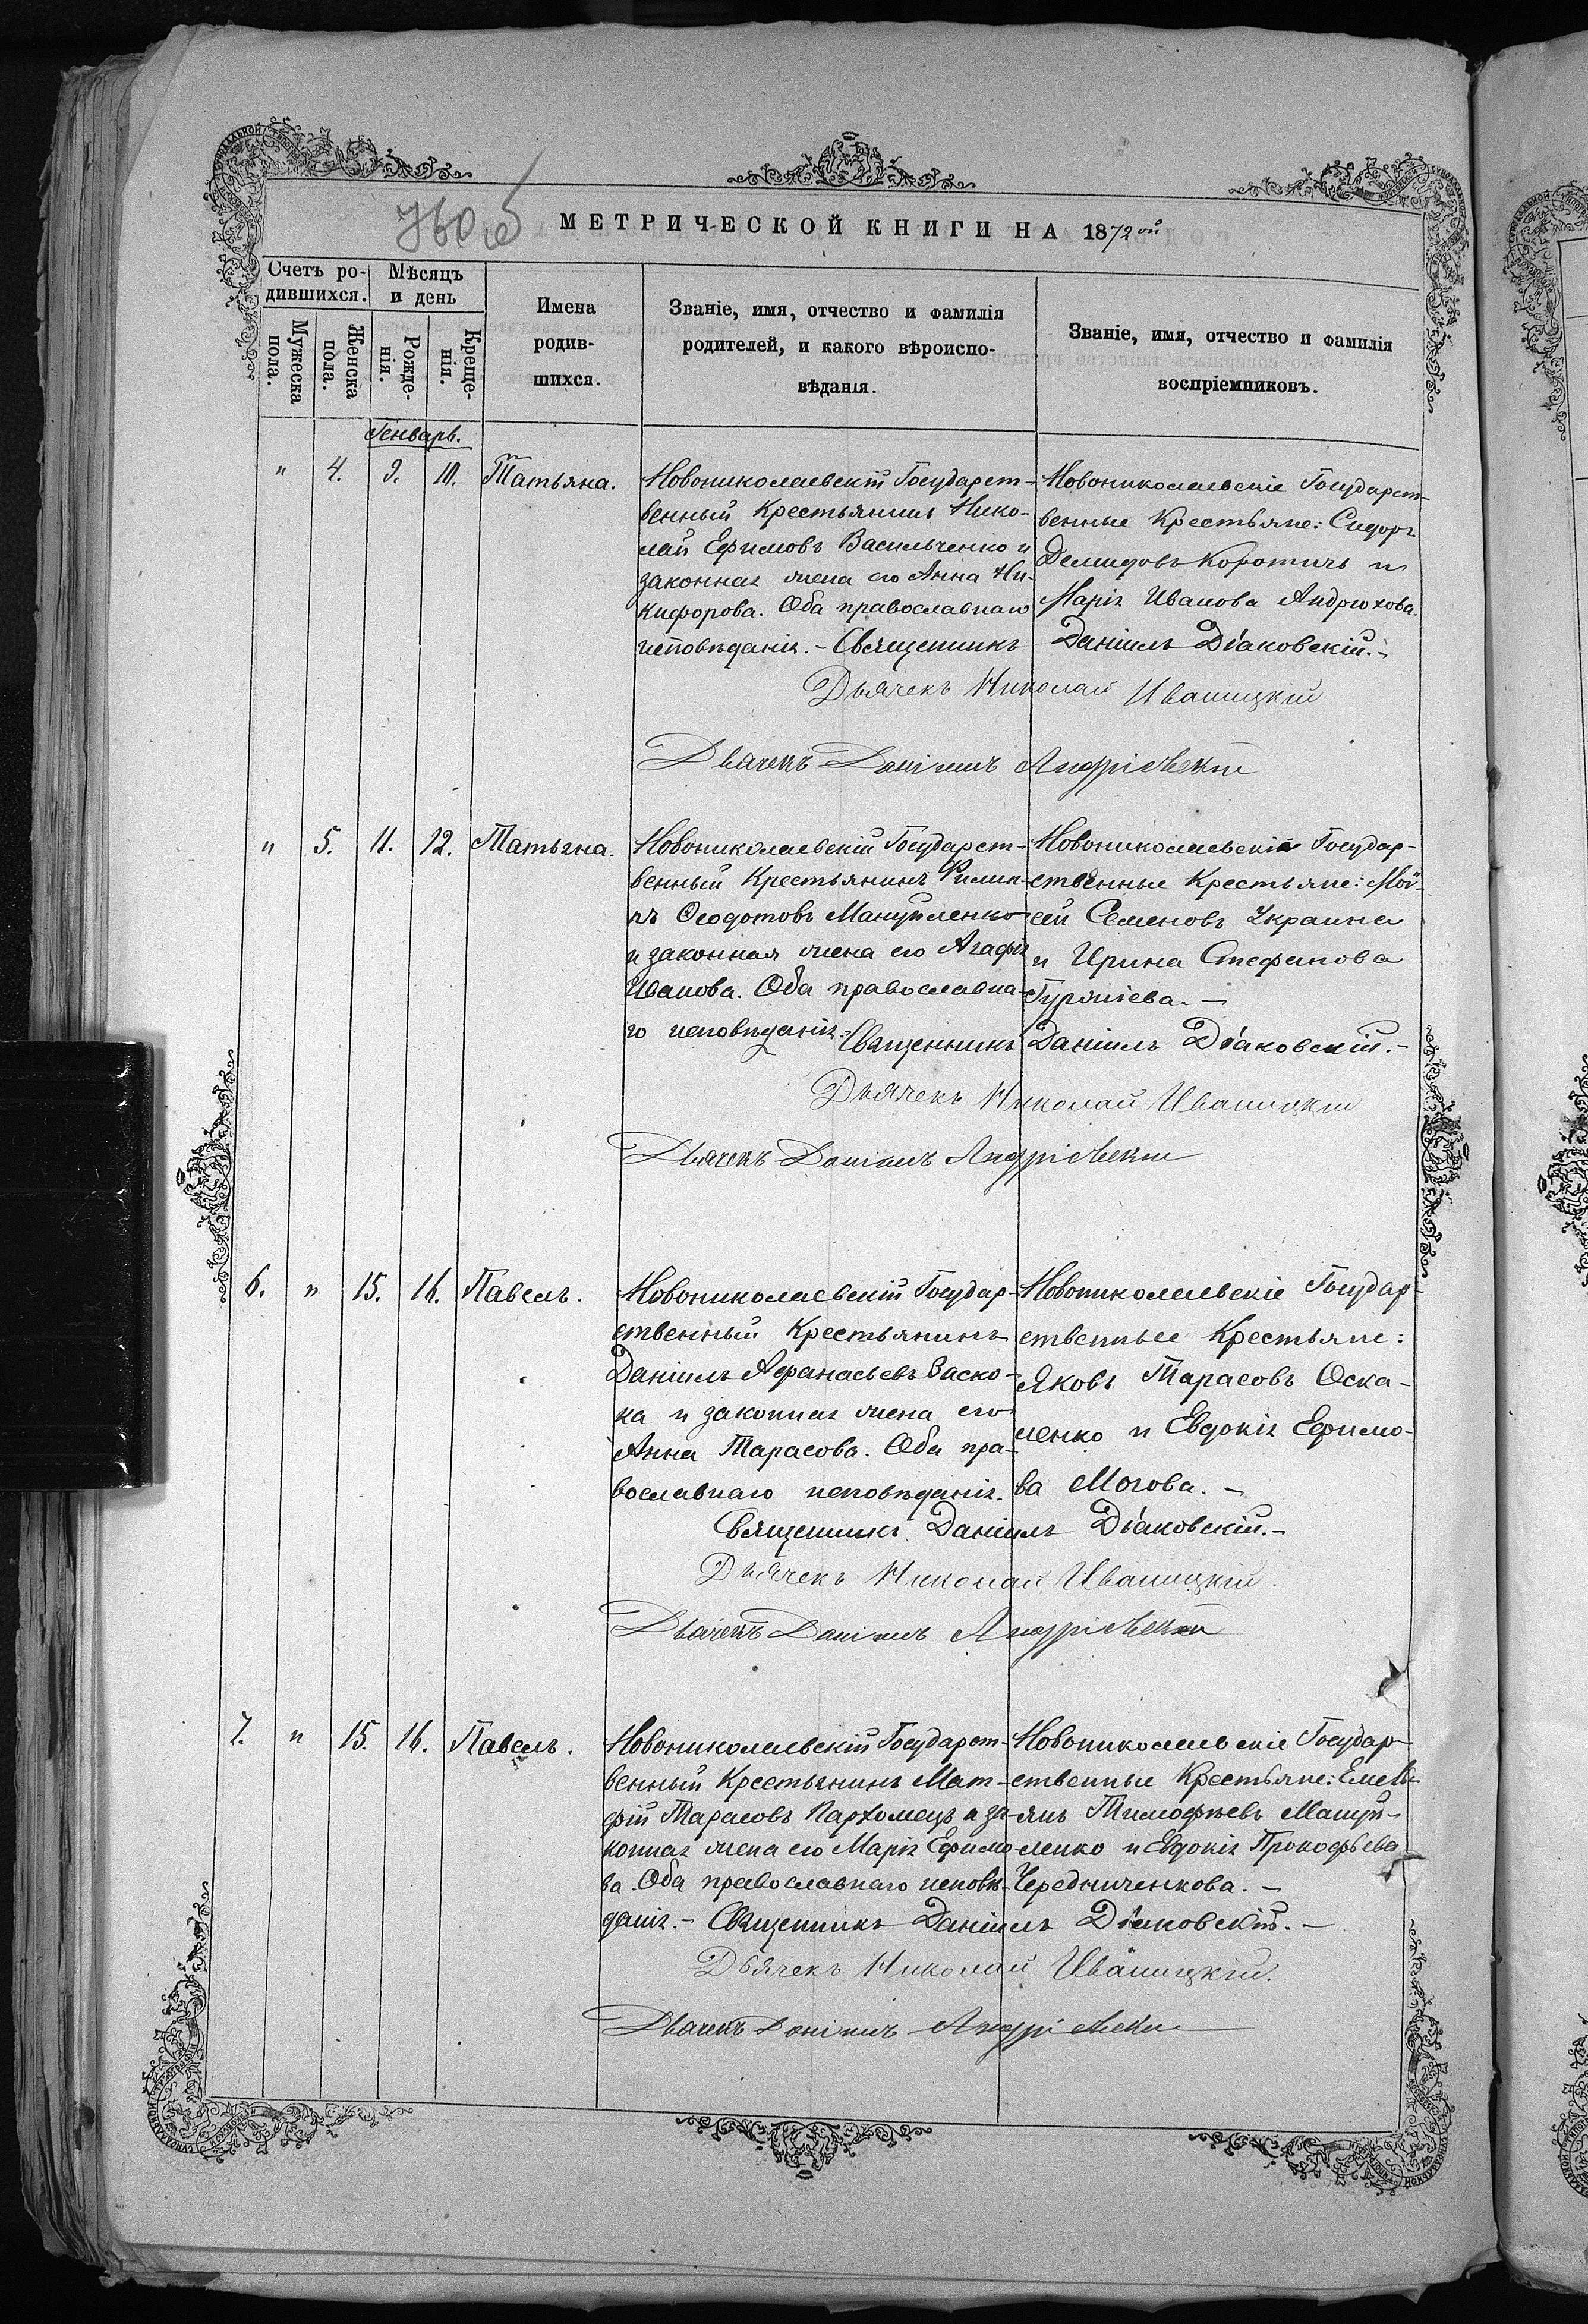 МЕТРИЧЕСКОЙ КНИГИ НА 1872ой
Счетъ ро-
дившихся.
Мѣсяцъ
и день
Мужеска
пола.
Женска
пола.
Рожде-
нія.
Креще-
нія.
Имена
родив-
шихся.
Званіе, имя, отчество и фамилія
родителей, и какого вѣроиспо-
вѣданія.
Званіе, имя, отчество и фамилія
воспріемниковъ.
Генварь.
" 4. 9. 10. Татьяна.
Новониколаевскій Государст-
венный Крестьянинъ Нико-
лай Ефимовъ Васильченко и
законная жена его Анна Ни-
кифорова. Оба православнаго
исповѣданія. - Священникъ
Новониколаевскіе Государст-
венные Крестьяне: Сидоръ
Демидовъ Коротичъ и
Марія Иванова Андрюхова.
Даніилъ Діаковскій. -
Дьячекъ Николай Иваницкій
Дьячекъ Даніилъ Андріевскій
" 5. 11. 12. Татьяна.
Новониколаевскій Государст-
венный Крестьянинъ Филип-
пъ Ѳеодотовъ Мануйленко
и законная жена его Агафія
Иванова. Оба православна-
го исповѣданія. - Священникъ
Новониколаевскіе Государ-
ственные Крестьяне: Мои-
сей Семеновъ Украина
и Ирина Стефанова
Даніилъ Діаковскій. -
Дьячекъ Николай Иваницкій
Дьячекъ Даніилъ Андріевскій
6. " 15. 16. Павелъ.
Новониколаевскій Государ-
ственный Крестьянинъ
Даніилъ Афанасьевъ Васко-
ка и законная жена его
Анна Тарасова. Оба пра-
вославнаго исповѣданія.
Новониколаевскіе Государ-
ственные Крестьяне:
Яковъ Тарасовъ Оска-
ленко и Евдокія Ефимо-
ва Могова. -
Священникъ Даніилъ Діаковскій. -
Дьячекъ Николай Иваницкій.
Дьячекъ Даніилъ Андріевскій
7. " 15. 16. Павелъ.
Новониколаевскій Государст-
венный Крестьянинъ Мат-
фій Тарасовъ Пархомецъ и за-
конная жена его Марія Ефимо-
ва. Оба православнаго исповѣ-
данія. - Священникъ Даніилъ Діаковскій. -
Новониколаевскіе Государ-
ственные Крестьяне: Емель-
янъ Тимофѣевъ Мануй-
ленко и Евдокія Прокофьева
Чередниченкова. -
Дьячекъ Николай Иваницкій.
Дьячекъ Даніилъ Андріевскій